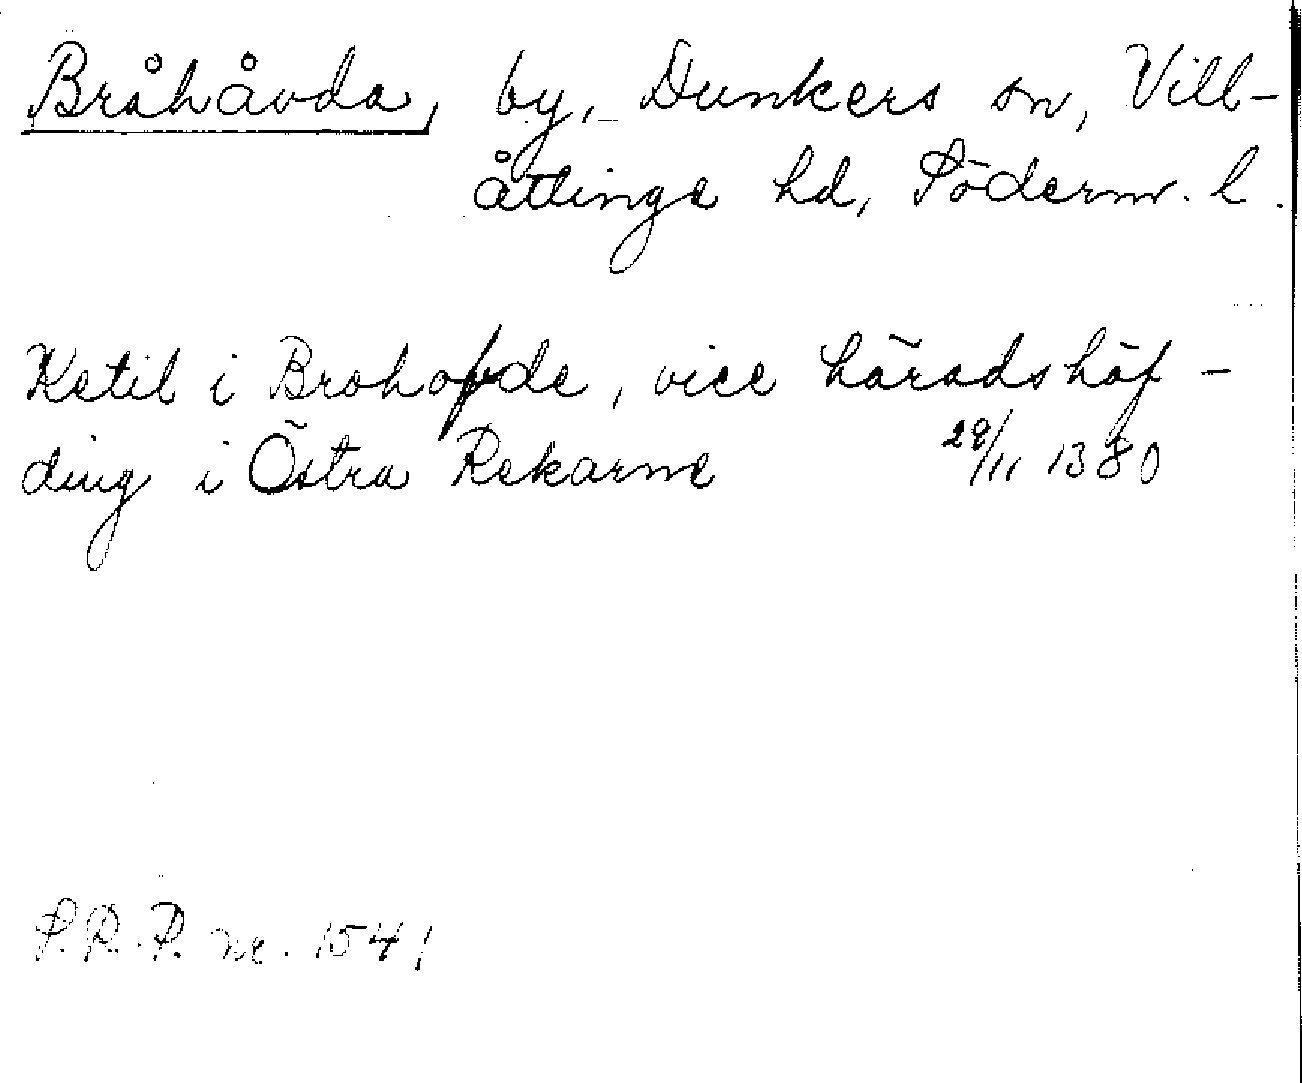 Bråhåvda, by, Dunkers sn, Vill-
åttinge hd, Söderm. l.
Ketil i Brohofde, vice häradshöf-
ding i Östra Rekarne 29/11 1380
S.R.P. nr. 1541